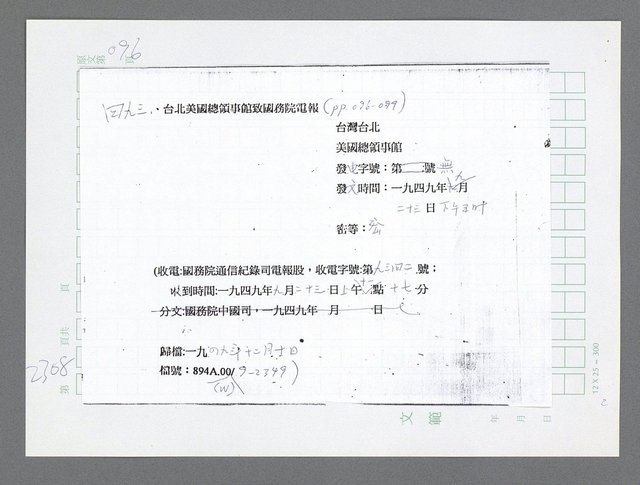 原文第096頁
四九三、台北美國總領事館致國務院電報(pp.096-099)
台灣台北
美國總領事館
發電字號：第 號 無
發文時間：一九四九年九月
二十三日下午三時
密等：密
(收電:國務院通信紀錄司電報股，收電字號:第九三四二號；
收到時間:一九四九年九月二十三日上午 點十七分
分文:國務院中國司，一九四九年 月 日
歸檔:一九四九年十二月十日
檔號：894A.00/9-2349)
(W)
頁
頁共
第
2308
12 X 25 = 300
文範
年 月 日